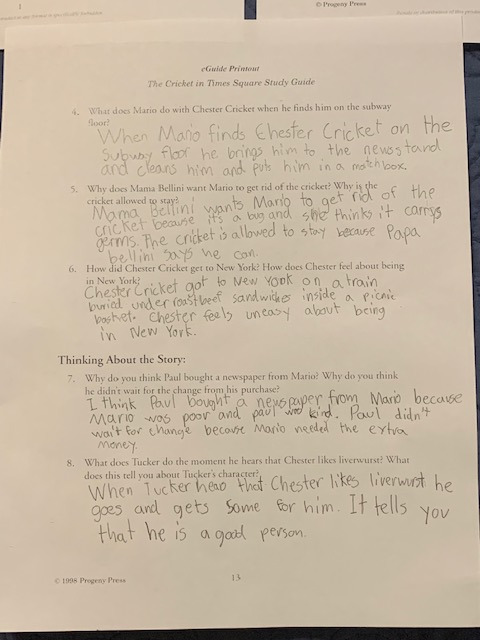 1
© Progeny Press
eGuide Printout
The Cricket in Times Square Study Guide
4. What does Mario do with Chester Cricket when he finds him on the subway
floor?
When Mario finds Chester Cricket on the
Subway floor he brings him to the newsstand
and cleans him and puts him in a matchbox.
5. Why does Mama Bellini want Mario to get rid of the cricket? Why is the
cricket allowed to stay?
Mama Bellini wants Mario to get rid of the
cricket because it's a bug and she thinks it carrys
germs. The cricket is allowed to stay because Papa
bellini says he can.
6. How did Chester Cricket get to New York? How does Chester feel about being
in New York?
Chester Cricket got to New York on a train
buried under roast beef sandwiches inside a picnic
basket. Chester feels uneasy about being
in New York.
Thinking About the Story:
7. Why do you think Paul bought a newspaper from Mario? Why do you think
he didn't wait for the change from his purchase?
I think Paul bought a newspaper from Mario because
Mario was poor and paul was kind. Paul didn't
wait for change because Mario needed the extra
money.
8. What does Tucker do the moment he hears that Chester likes liverwurst? What
does this tell you about Tucker's character?
When Tucker hears that Chester likes liverwurst he
goes and gets some for him. It tells you
that he is a good person.
© 1998 Progeny Press
13